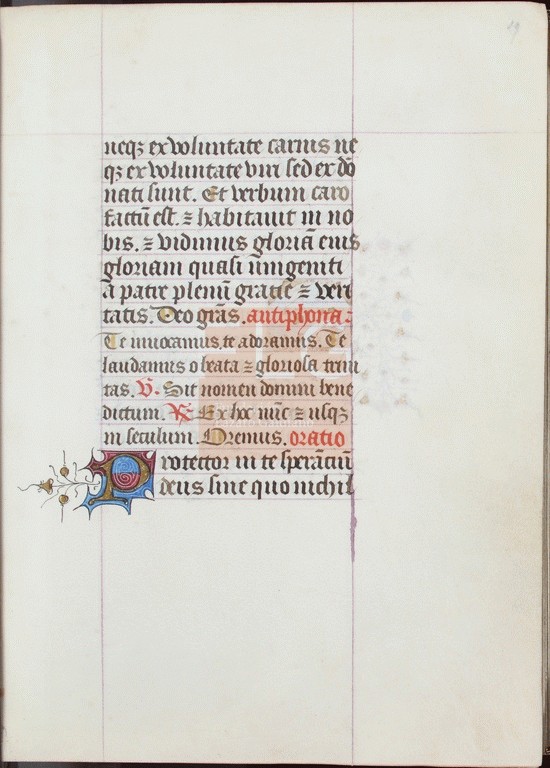 19
neqz ex voluntate carnis ne
qz ex voluntate viri sed ex dō
nati sunt. Et verbum caro
factū est. ⁊ habitavit in no
bis. ⁊ vidimus gloriā eius
gloriam quasi unigeniti
a patre plenū gratie ⁊ veri
tatis. Deo grās. antiphona :
Te invocamus, te adoramus. Te
laudamus o beata ⁊ gloriosa trini
tas. V. Sit nomen domini bene
dictum. R. Ex hoc nūc ⁊ usqz
in seculum. Oremus. oratio
Protector in te sperātiū
deus sine quo nichil